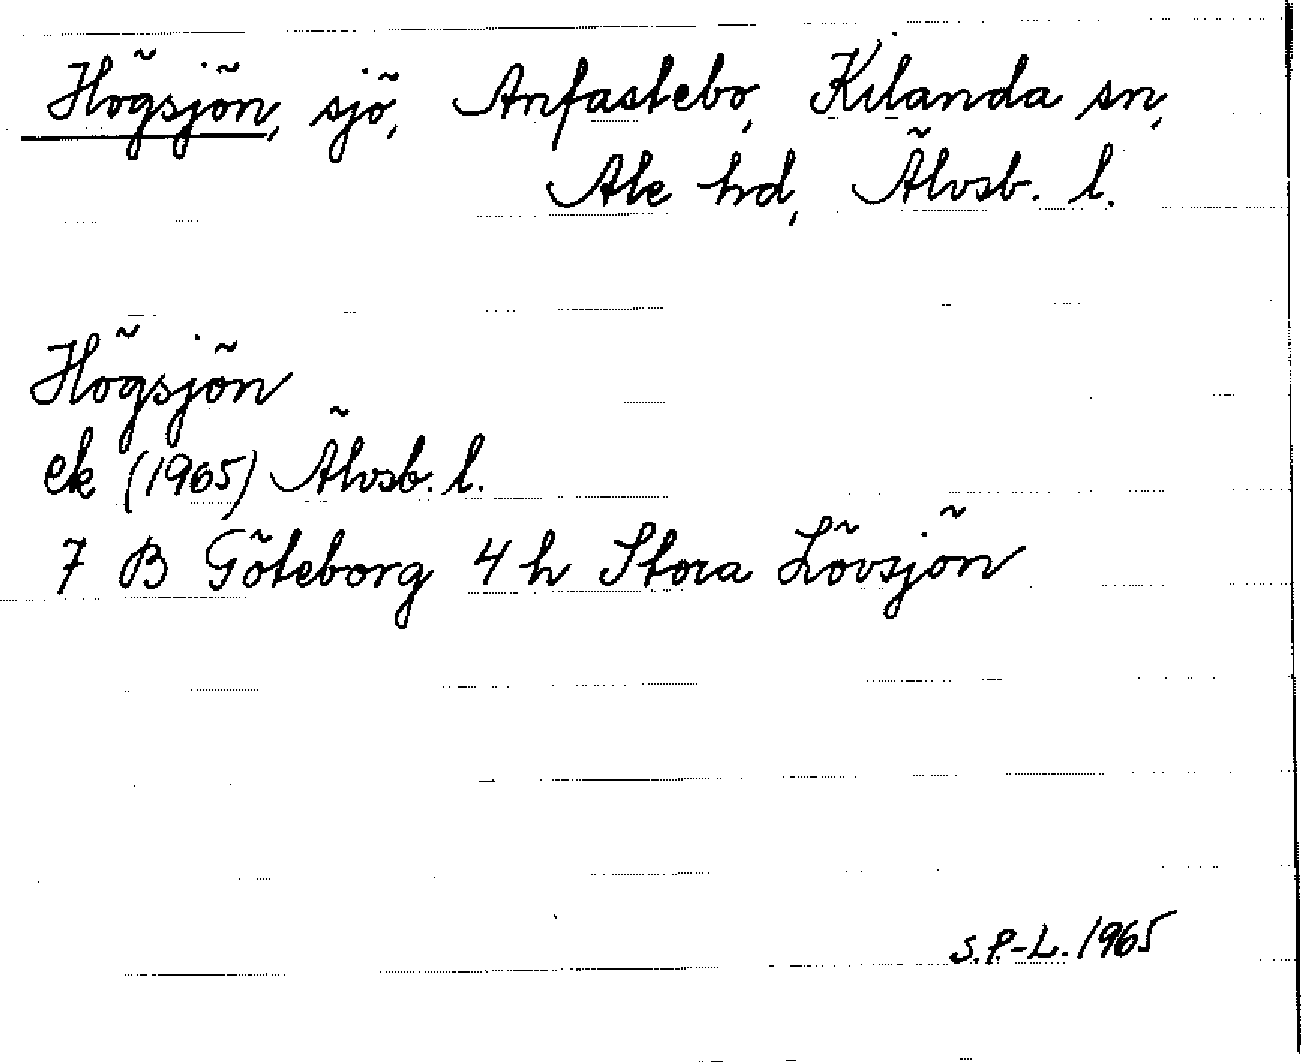 Högsjön, sjö, Anfastebo, Kilanda sn,
Ale hd, Älvsb. l.
Högsjön
ek (1965) Älvsb. l.
7 B Göteborg 4 h Stora Lövsjön
S.P.-L. 1965